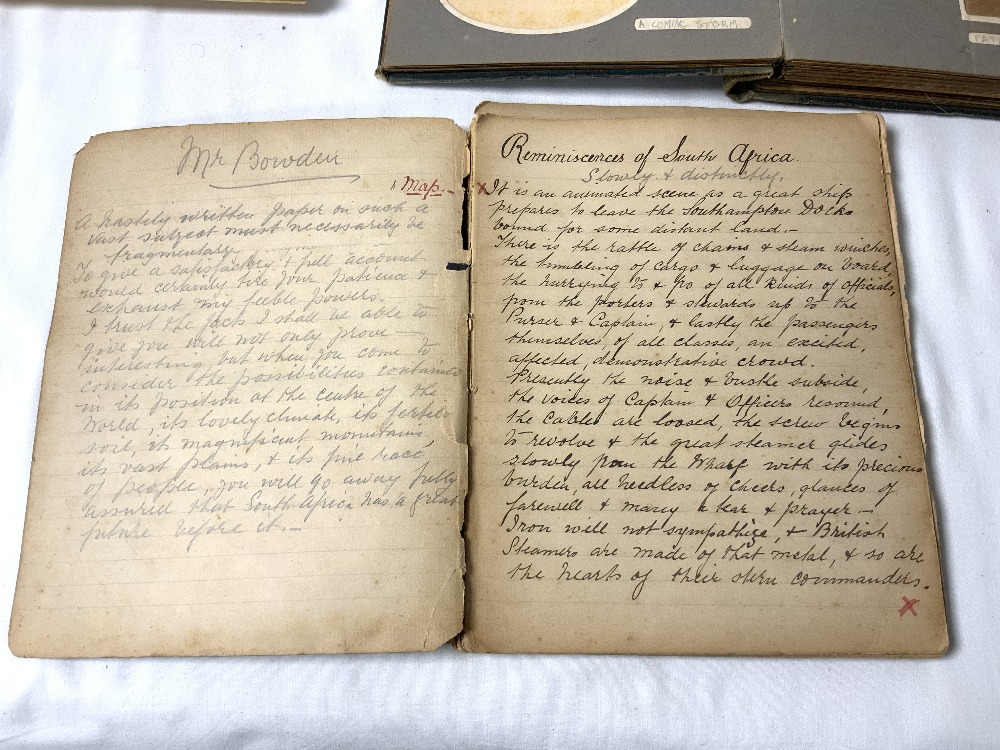 A COMING STORM.
Mr Bowden
Map.
A hastely written paper on such a
vast subject must necessarily be
fragmentary
To give a satisfactory & full account
would certainly tire your patience &
exhaust my feeble powers.
I trust the facts I shall be able to
give you will not only prove
interesting but when you come to
consider the possibilities contained
in its position at the centre of the
World, its lovely climate, its fertile
soil, its magnificent mountains,
its vast plains, & its fine race
of people, you will go away fully
assured that South Africa has a great
future before it.—
Reminiscences of South Africa.
Slowly & distinctly.
x It is an animated scene as a great ship
prepares to leave the Southampton Docks
bound for some distant land.—
There is the rattle of chains & steam winches,
the tumbling of cargo & luggage on board,
the hurrying to & fro of all kinds of officials,
from the porters & stewards up to the
Purser & Captain, & lastly the passengers
themselves, of all classes, an excited,
affected, demonstrative crowd.
Presently the noise & bustle subside,
the voices of Captain & Officers resound,
the Cables are loosed, the screw begins
to revolve & the great steamer glides
slowly from the Wharf with its precious
burden, all heedless of cheers, glances of
farewell & many a tear & prayer —
Iron will not sympathise, & British
Steamers are made of that metal, & so are
the hearts of their stern commanders.
x